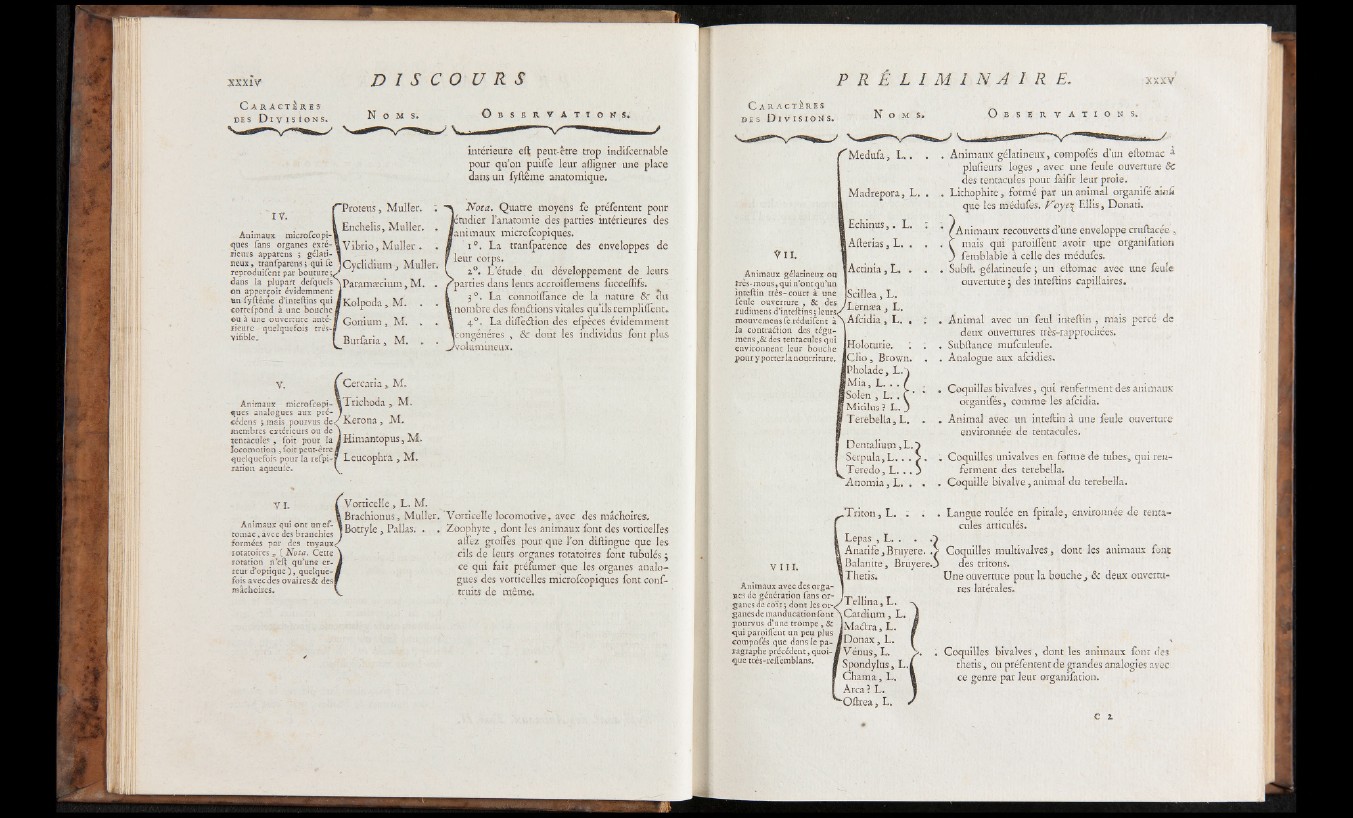 xxxiv
DISCOURS
CARACTÈRES
DES DIVISIONS.
NOMS.
OBSERVATIONS.
intérieure eſt peut-être trop indiſcernable
pour qu'on puiſſe leur aſſigner une place
dans un ſyſtême anatomique.
IV.
Animaux microſcopi-
ques ſans organes exté-
rieurs apparens ; gélati-
neux, tranſparens ; qui ſe
reproduiſent par bouture ;
dans la plupart deſquels
on apperçoit évidemment
un ſyſtême d'inteſtins qui
correſpond à une bouche
ou à une ouverture anté-
rieure quelquefois très-
viſible.
Proteus, Muller. :
Enchelis, Muller. .
Vibrio, Muller . .
Cyclidium, Muller.
Paramæcium, M. .
Kolpoda, M. . .
Gonium, M. . .
Burſaria, M. . .
Nota. Quatre moyens ſe préſentent pour
étudier l'anatomie des parties intérieures des
animaux microſcopiques.
1°. La tranſparence des enveloppes de
leur corps.
2°. L'étude du développement de leurs
parties dans leurs accroiſſemens ſucceſſifs.
3°. La connoiſſance de la nature & du
nombre des fonctions vitales qu'ils rempliſſent.
4°. La diſſection des eſpèces évidemment
congénères, & dont les individus ſont plus
volumineux.
V.
Animaux microſcopi-
ques analogues aux pré-
cédens ; mais pourvus de
membres extérieurs ou de
tentacules, ſoit pour la
locomotion, ſoit peut-être
quelquefois pour la reſpi-
ration aqueuſe.
Cercaria, M.
Trichoda, M.
Kerona, M.
Himantopus, M.
Leucophra, M.
VI.
Animaux qui ont un eſ-
tomac, avec des branchies
formées par des tuyaux
rotatoires, (Nota. Cette
rotation n'eſt qu'une er-
reur d'optique), quelque-
fois avec des ovaires & des
mâchoires.
Vorticelle, L. M.
Brachionus, Muller. Vorticelle locomotive, avec des mâchoires.
Botryle, Pallas. . . Zoophyte, dont les animaux ſont des vorticelles
aſſez groſſes pour que l'on diſtingue que les
cils de leurs organes rotatoires ſont tubulés ;
ce qui fait préſumer que les organes analo-
gues des vorticelles microſcopiques ſont conſ-
truits de même.
PRÉLIMINAIRE.
xxxv
CARACTÈRES
DES DIVISIONS.
NOMS.
OBSERVATIONS.
VII.
Animaux gélatineux ou
très-mous, qui n'ont qu'un
inteſtin très-court à une
ſeule ouverture, & des
rudimens d'inteſtins ; leurs
mouvemens ſe réduiſent à
la contraction des tégu-
mens, & des tentacules qui
environnent leur bouche
pour y porter la nourriture.
Meduſa, L. . . . Animaux gélatineux, compoſés d'un eſtomac à
pluſieurs loges, avec une ſeule ouverture &
des tentacules pour ſaiſir leur proie.
Madrepora, L. . . Lithophite, formé par un animal organiſé ainſi
que les méduſes. Voyez Ellis, Donati.
Echinus, . L. : .
Aſterias, L. . . .
Animaux recouverts d'une enveloppe cruſtacée,
mais qui paroiſſent avoir une organiſation
ſemblable à celle des méduſes.
Actinia, L. . . . Subſt. gélatineuſe ; un eſtomac avec une ſeule
ouverture ; des inteſtins capillaires.
Scillea, L.
Lernæa, L.
Aſcidia, L. . : . Animal avec un ſeul inteſtin, mais percé de
deux ouvertures très-rapprochées.
Holoturie. : : . Subſtance muſculeuſe.
Clio, Brown. . . Analogue aux aſcidies.
Pholade, L.
Mia, L. . .
Solen, L. . .
Mitilus ? L.
. : . Coquilles bivalves, qui renferment des animaux
organiſés, comme les aſcidia.
Terebella, L. . . Animal avec un inteſtin à une ſeule ouverture
environnée de tentacules.
Dentalium, L.
Serpula, L. . . .
Teredo, L. . .
. : Coquilles univalves en forme de tubes, qui ren-
ferment des terebella.
Anomia, L. . . . Coquille bivalve, animal du terebella.
VIII.
Animaux avec des orga-
nes de génération ſans or-
ganes de coït ; dont les or-
ganes de manducation ſont
pourvus d'une trompe, &
qui paroiſſent un peu plus
compoſés que dans le pa-
ragraphe précédent, quoi-
que très-reſſemblans.
Triton, L. : . . Langue roulée en ſpirale, environnée de tenta-
cules articulés.
Lepas, L. . . .
Anatife, Bruyere. .
Balanite, Bruyere.
Coquilles multivalves, dont les animaux ſont
des tritons.
Thetis.
Une ouverture pour la bouche, & deux ouvertu-
res latérales.
Tellina, L.
Cardium, L.
Mactra, L.
Donax, L.
Vénus, L.
Spondylus, L.
Chama, L.
Arca ? L.
Oſtrea, L.
. : Coquilles bivalves, dont les animaux ſont des
thetis, ou préſentent de grandes analogies avec
ce genre par leur organiſation.
c 2